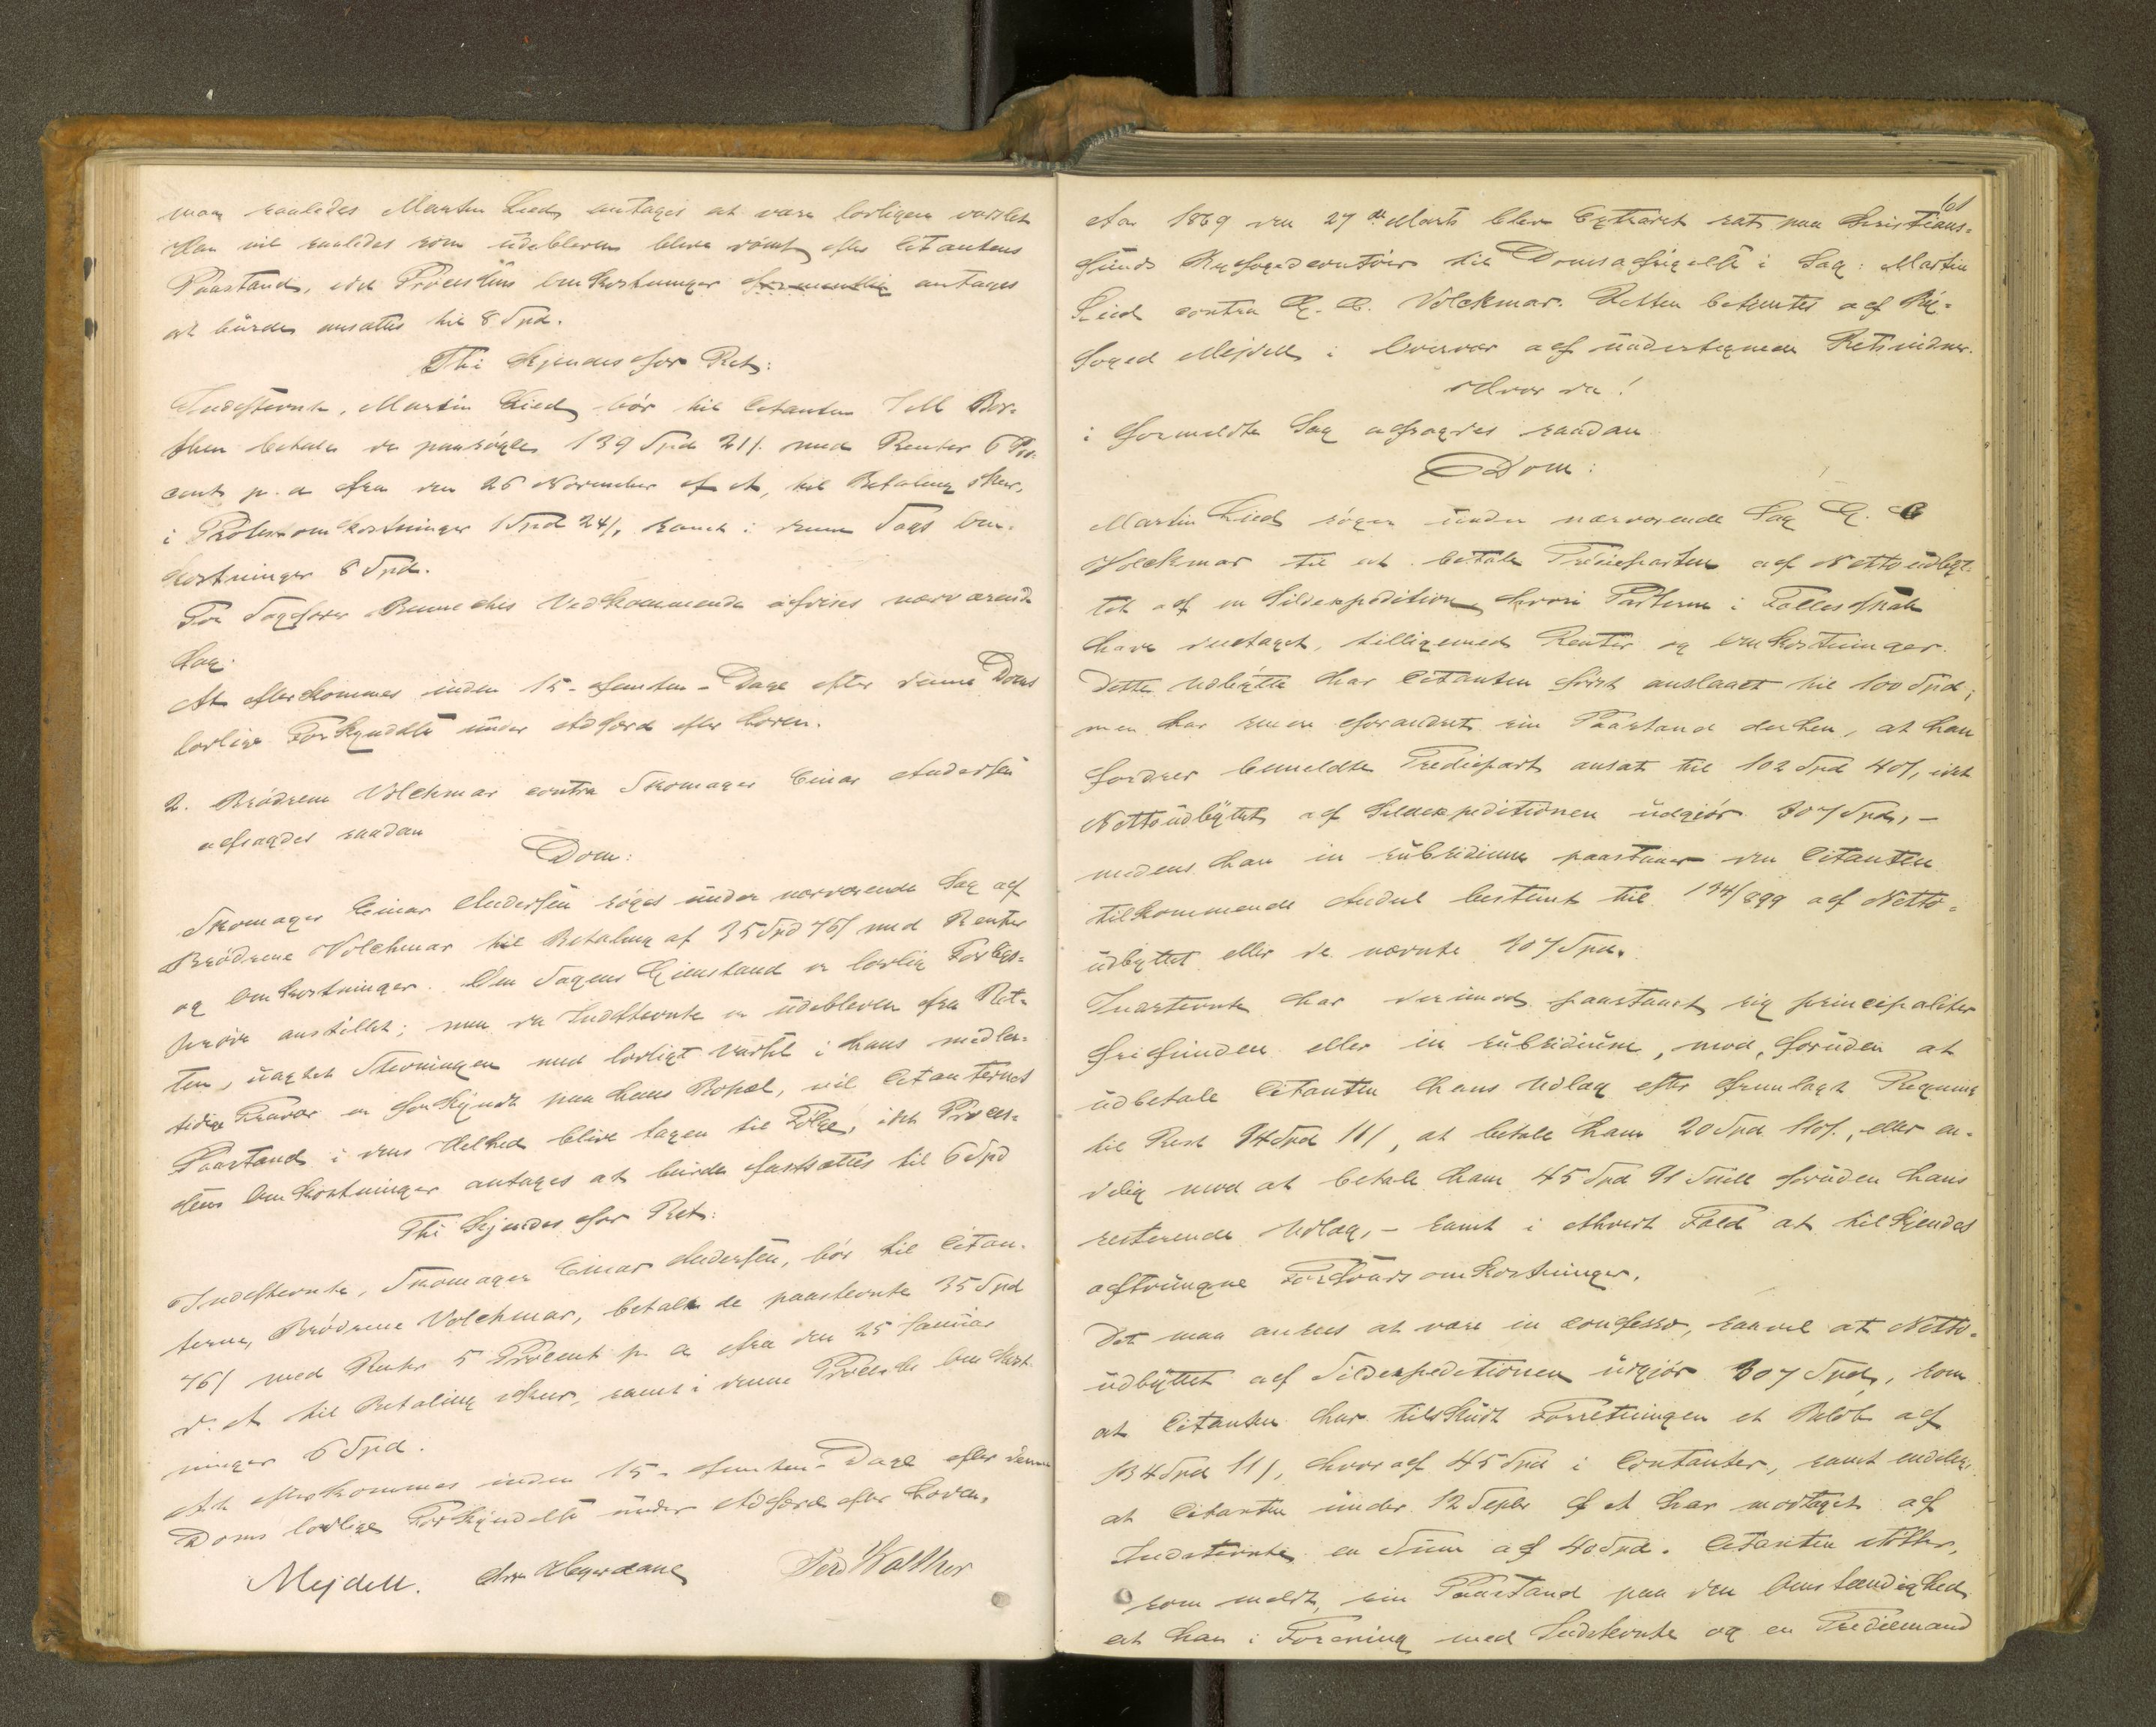 maa saaledes Martin Lied antages at være lovligen varslet
Han vil saaledes som udebleven blive dömt efter Citantens
Paastand, idet Procesſens Omkostninger formentlig antages
at burde ansættes til 8 Spd.
Thi kjendes for Ret:
Indstevnte, Martin Lied bör til Citanten
betale de paasögte 139 Spd 21 ß. med Renter 6 Pro-
cent p. a fra den 26 November f A, til Betaling skeer,
i Protestomkostninger 1 Spd 24 ß, samt i denne Sags Om-
kostninger 8 Spd.
For Sagförer Vedkommende afvises nærværende
Sag.
At efterkommes inden 15 - femten - Dage efter denne Doms
lovlige Forkyndelse under Adfærd efter Loven.
2. Brödrene Volckmar contra Skomager Einar Anderſen
afsagdes saadan
Dom:
Skomager Einar Anderſen söges under nærværende Sag af
Brödrene Volckmar til Betaling af 35 Spd 76 ß med Renter
og Omkostninger. Om Sagens Gjenstand er lovlig Forligs-
pröve anstillet; men da Indstevnte er udebleven fra Ret-
ten, uagtet Stevningen med lovligt Varsel i hans midler-
tidige Fravær er forkyndt paa hans Bopæl, vil Citanternes
Paastand i dens Helhed blive tagen til Fölge, idet Proces-
ſens Omkostninger antages at burde fastsættes til 6 Spd
Thi kjendes for Ret:
Indstevnte, Skomager Einar Anderſen, bör til Citan-
terne, Brödrene Volckmar, betale de paastevnte 35 Spd
76 ß med Renter 5 Procent p. a fra den 25 Januar
d. A til Betaling skeer, samt i denne Omkost-
ninger 6 Spd.
At efterkommes inden 15 - femten - Dage efter denne
Doms lovlige Forkyndelse under Adfærd efter Loven.
Mejdell. Chr Ferd Walther
61
Aar 1869 den 27de Marts blev Extraret sat paa Christians-
sunds Byfogedcontoir til Domsafsigelse i Sag: Martin
Lied contra G. C. Volckmar. Retten betjentes af By-
foged Mejdell i Overvær af undertegnede Retsvidner.
Hvor da!
i formeldte Sag afsagdes saadan
Dom:
Martin Lied söger under nærværende Sag G. C
Volckmar til at betale Trediеparten af Nettoudbyt-
tet af en Sildexpedition hvori Parterne i Fællesskab
have deeltaget, tilligemed Renter og Omkostninger.
Dette Udbytte har Citanten först anslaaet til 100 Spd;
men har senere forandret sin Paastand derhen, at han
fordrer bemeldte Trediepart ansat til 102 Spd 40 ß, idet
Nettoudbyttet af Sildexpeditionen udgjör 307 Spd, -
medens han in subsidium paastaaer den Citanten
tilkommende Andel bestemt til 134/899 af Netto-
udbyttet eller de nævnte 307 Spd.
Indstevnte har derimod paastaaet sig principaliter
frifunden eller in subsidium, mod, foruden at
udbetale Citanten hans Udlæg efter fremlagt Regning
til Rest 94 Spd 11 ß, at betale ham 20 Spd 110 ß., eller en-
delig mod at betale ham 45 Spd 91 Skill foruden hans
resterende Udlæg, - samt i ethvert Fald at tilkjendes
aftvungne Forsvarsomkostninger.
Det maa ansees at være in confesso, saavel at Netto-
udbyttet af Sildexpeditionen udgjör 307 Spd, som
at Citanten har tilskudt Forretningen et Belöb af
134 Spd 11 ß, hvoraf 45 Spd i Contanter, samt endelig,
at Citanten under 12 Septbr f A har modtaget af
Indstevnte en Sum af 40 Spd. Citanten stötter,
som meldt, sin Paastand paa den Omstændighed
at han i Forening med Indstevnte og en Trediemand